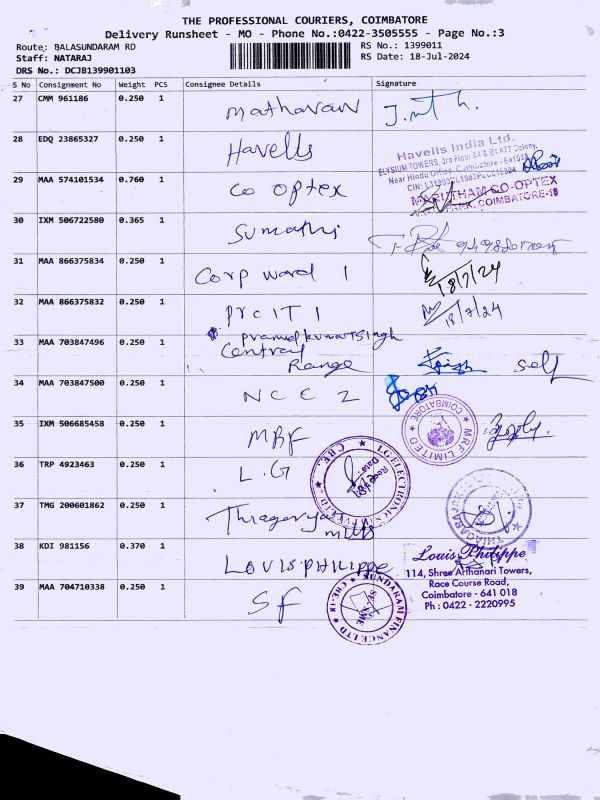 THE PROFESSIONAL COURIERS, COIMBATORE
Delivery Runsheet - MO - Phone No.:0422-3505555 - Page No.:3
Route: BALASUNDARAM RD
RS No.: 1399011
Staff: NATARAJ
RS Date: 18-Jul-2024
DRS No.: DCJB139901103
S No Consignment No Weight PCS Consignee Details Signature
27 CMM 961186 0.250 1 Mathavan
28 EDQ 23865327 0.250 1 Havells
Havells India Ltd.
ELYSIUM TOWERS, 3rd Floor
Near Hindu Office, Coimbatore - 641018
29 MAA 574101534 0.760 1 Co optex
MARUTHAM CO-OPTEX
COIMBATORE-18
30 IXM 506722580 0.365 1 Sumathi
31 MAA 866375834 0.250 1 Corp ward 1 18/7/24
32 MAA 866375832 0.250 1 Prc IT 1 18/7/24
Pramod kumar Singh
33 MAA 703847496 0.250 1 Central Range Self
34 MAA 703847500 0.250 1 NCC 2
35 IXM 506685458 0.250 1 MRF
MRF LIMITED ★ COIMBATORE ★
36 TRP 4923463 0.250 1 L.G
LG ELECTRONICS
CBE.
37 TMG 200601862 0.250 1 Thiagaraya mills
38 KDI 981156 0.370 1 LOUIS PHILIPPE
Louis Philippe
114, Shree Arthanari Towers,
Race Course Road,
Coimbatore - 641 018
Ph : 0422 - 2220995
39 MAA 704710338 0.250 1 SF
SUNDARAM FINANCE LTD
CBE-18